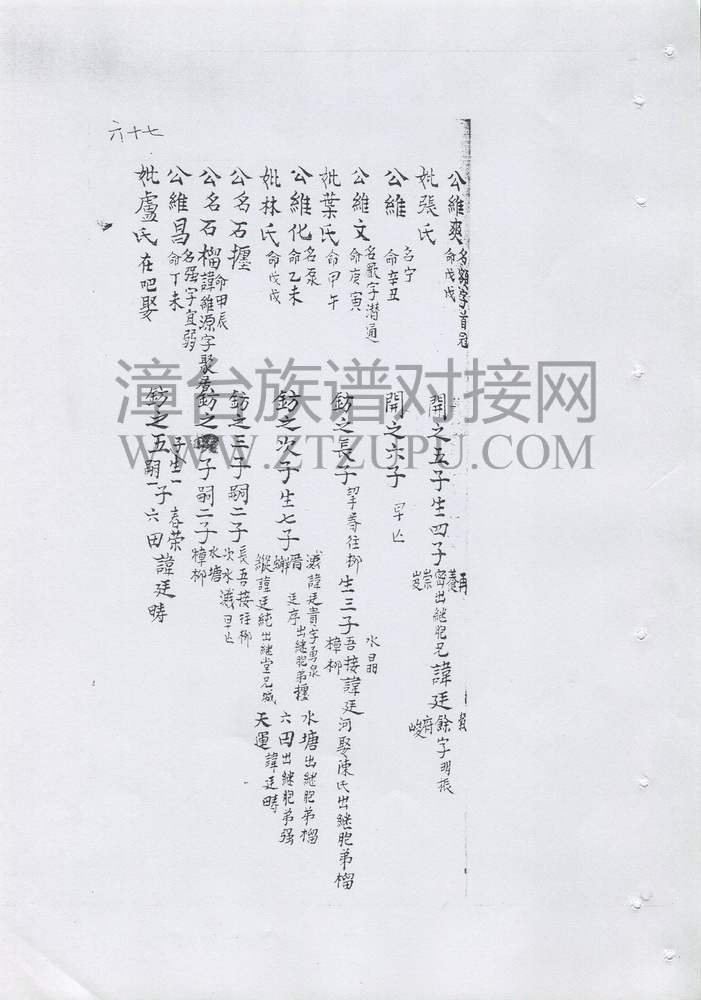 六十七
公維爽 命戊戌 名顯字首冠 開之五子生四子 諱廷餘字明振
妣張氏
公維 名宁 命辛丑 開之六子 早亡
公維文 名嚴字潛通 命庚寅 鈁之長子 往柳 生三子 水晶 吾接 樟柳 諱廷河娶陳氏出継胞弟榴
妣葉氏 命甲午
公維化 名泵 命乙未 鈁之次子生七子 諱廷貴字勇泉 廷序出継胞弟 諱廷純出継堂兄城 水塘出継胞弟榴 六田出継胞弟强 天運 諱廷畴
妣林氏 命戊戌
公名石 鈁之三子嗣二子 長吾接往柳 次水 早亡
公名石榴 命甲辰 諱維源字聚 鈁之 子嗣二子 水塘 樟柳
公維昌 名强字宜弱 命丁未 鈁之五 子生一 嗣一子 春荣 六田諱廷畴
妣盧氏 在吧娶
漳台族谱对接网
WWW.ZTZUPU.COM